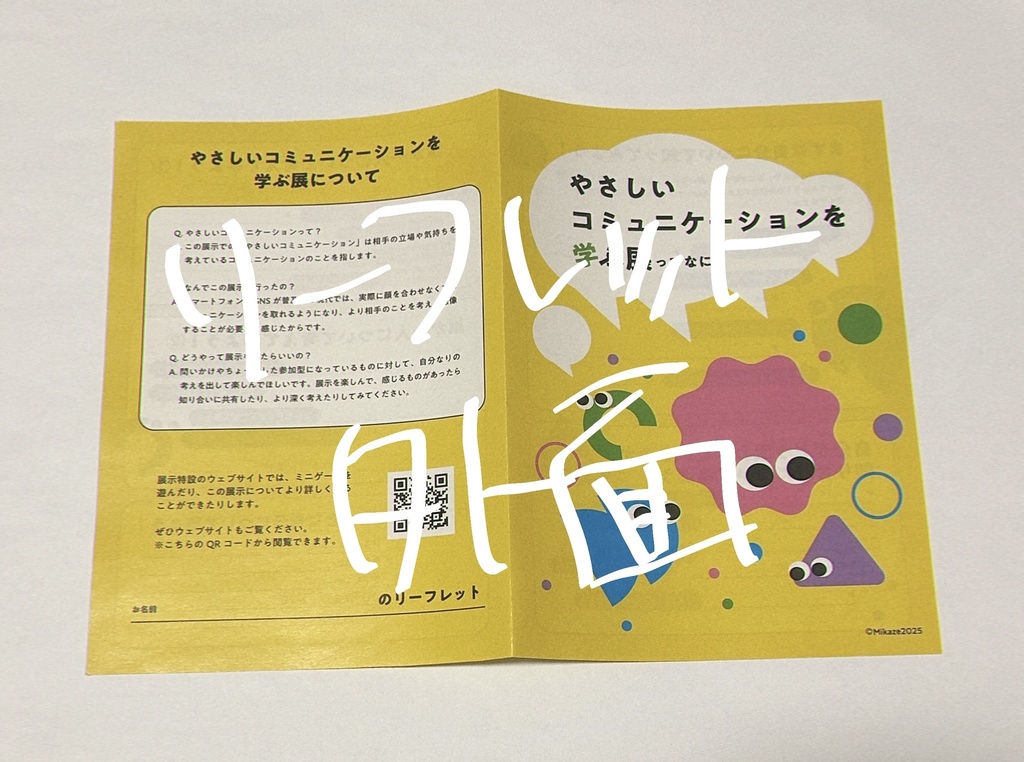 やさしいコミュニケーションを
学ぶ展について
Q. やさしいコミュニケーションって？
この展示での「やさしいコミュニケーション」は相手の立場や気持ちを
考えているコミュニケーションのことを指します。
なんでこの展示 行ったの？
A. マートフォン SNS が普 現代では、実際に顔を合わせなく
ニケーションを取れるようになり、より相手のことを考え 像
することが必要 感じたからです。
Q. どうやって展示 たらいいの？
A. 問いかけやちょ た参加型になっているものに対して、自分なりの
考えを出して楽しんでほしいです。展示を楽しんで、感じるものがあったら
知り合いに共有したり、より深く考えたりしてみてください。
展示特設のウェブサイトでは、ミニゲー を
遊んだり、この展示についてより詳しく る
ことができたりします。
ぜひウェブサイトもご覧ください。
※こちらの QR コードから閲覧できます。
のリーフレット
お名前
やさしい
コミュニケーションを
学ぶ展 ってなに
©Mikaze2025
リーフレット
外面